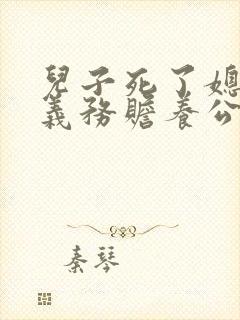 兒子死了媳
義務贍養公
秦琴